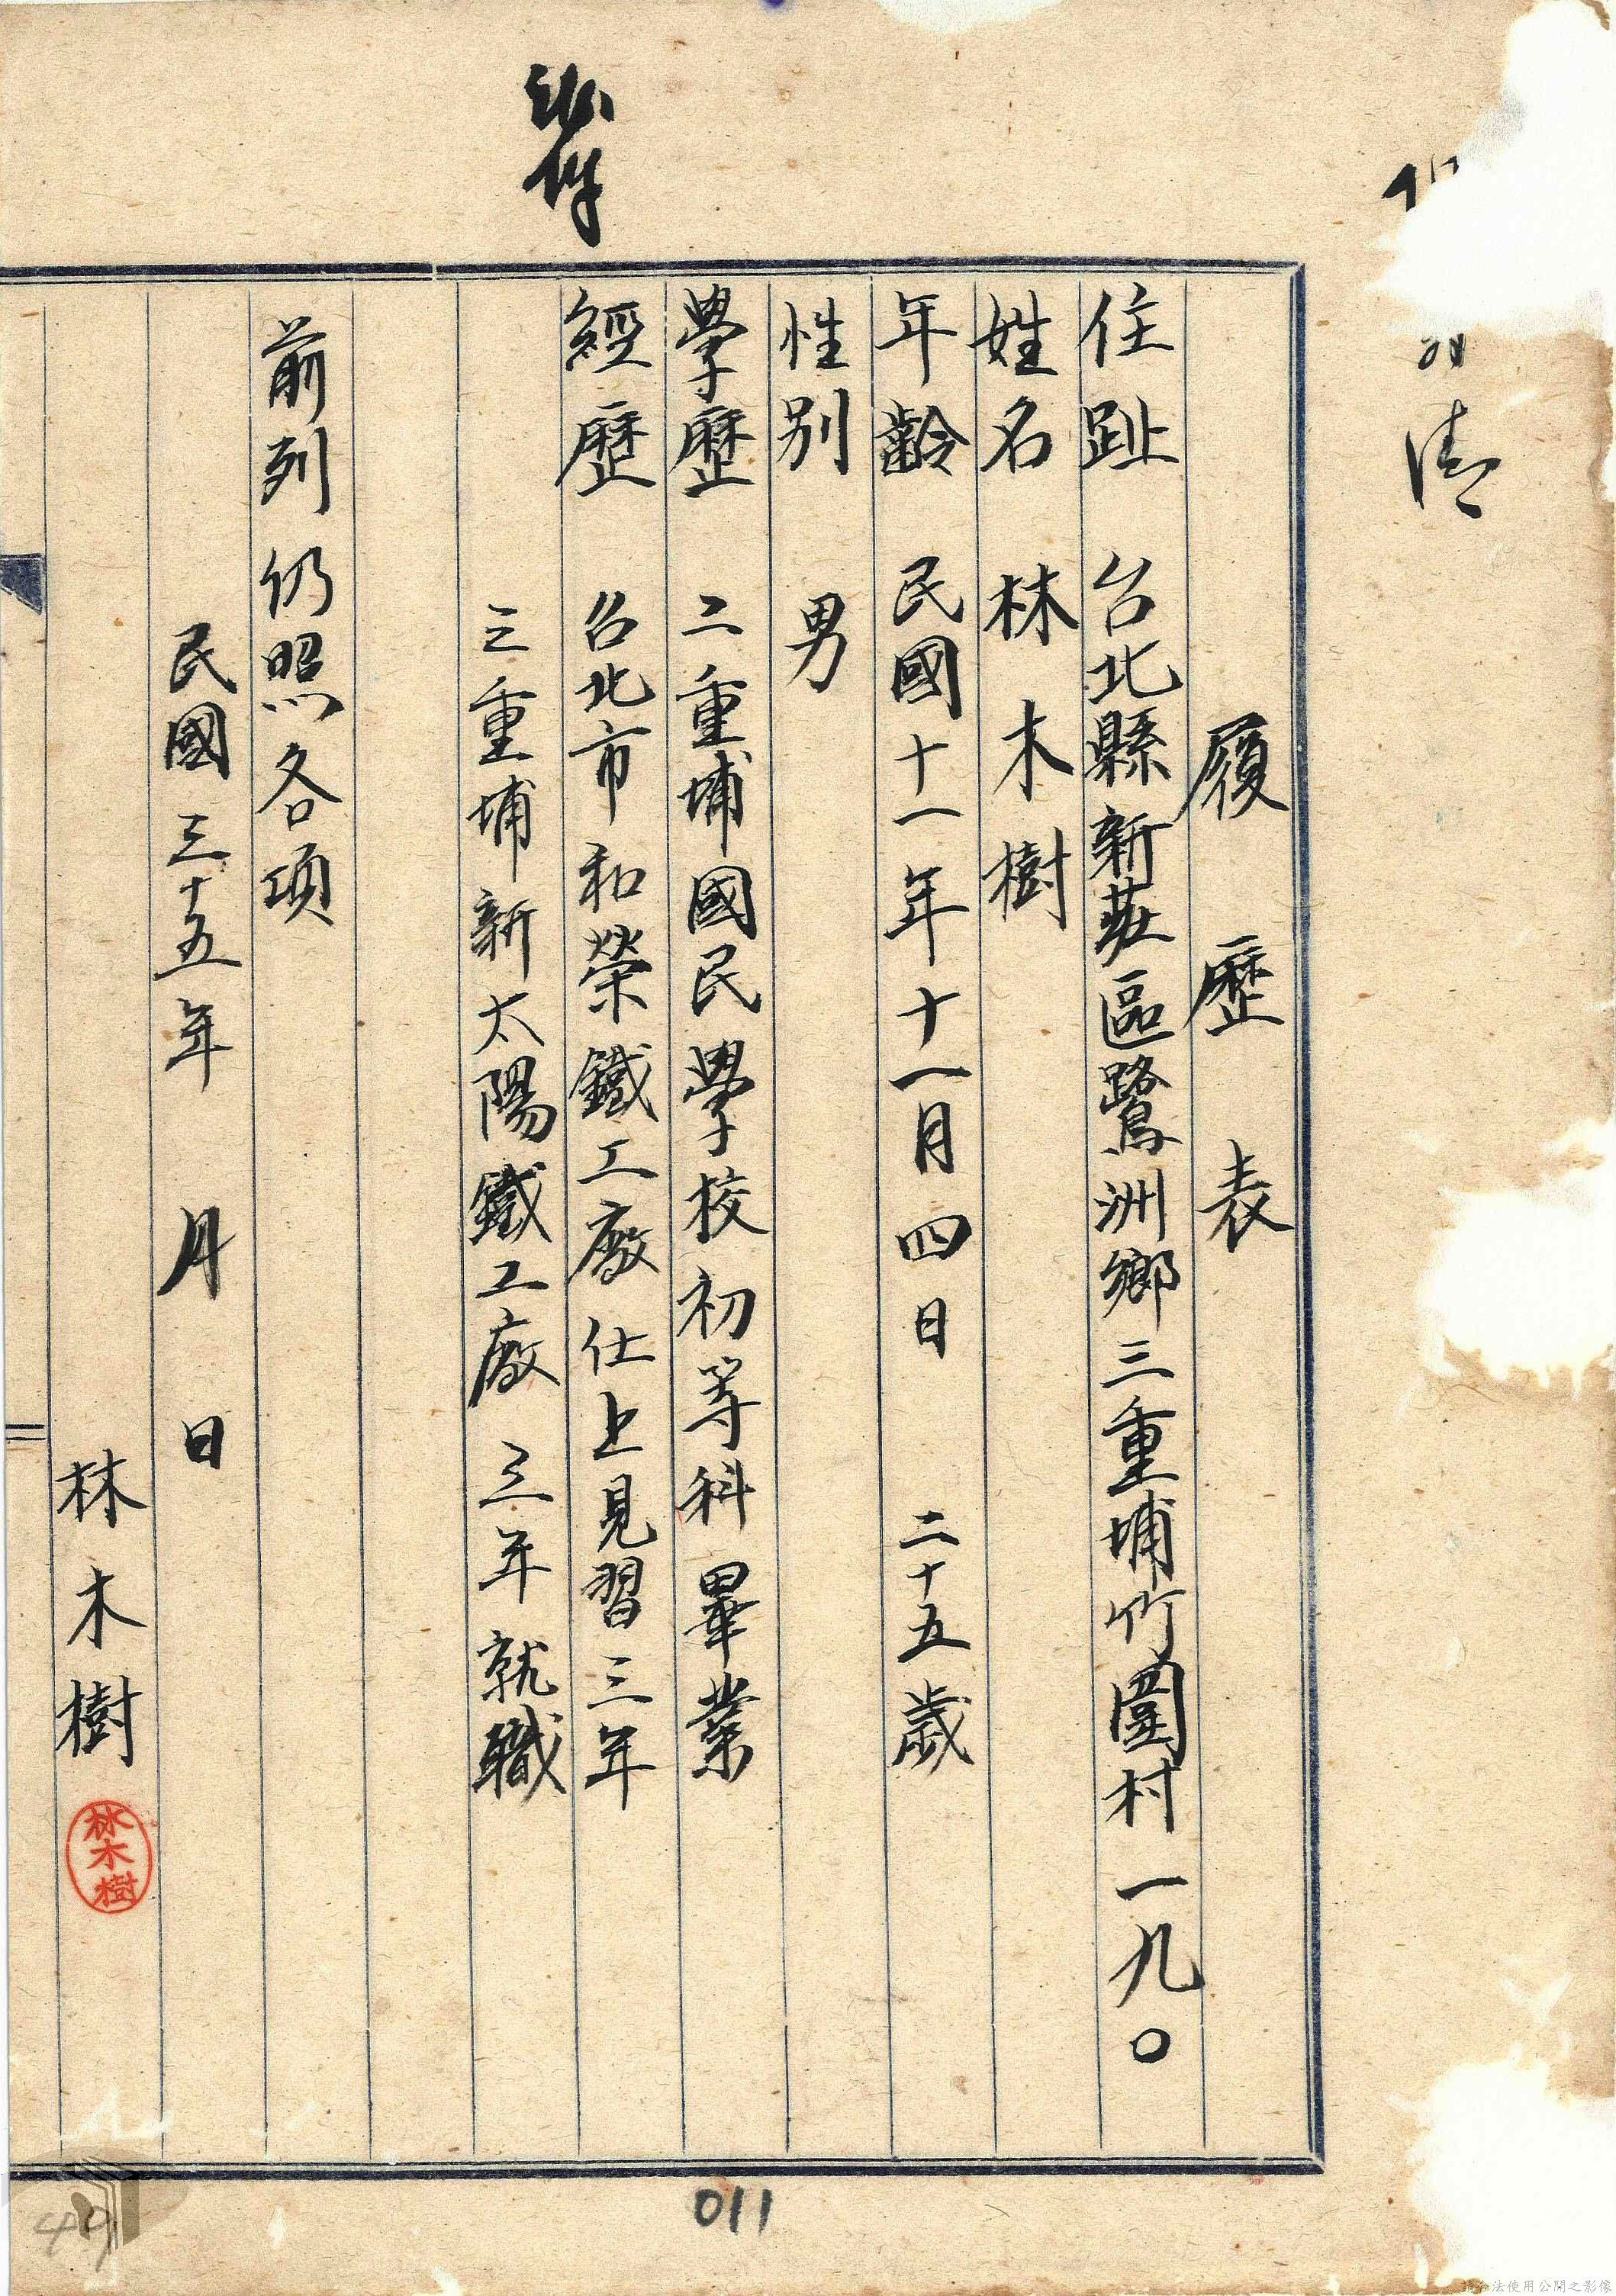 清
履歷表
住趾 台北縣新莊區鷺洲鄉三重埔竹圍村一九〇
姓名 林木樹
年齡 民國十一年十一月四日 二十五歲
性別 男
學歷 二重埔國民學校初等科畢業
經歷 台北市和榮鐵工廠仕上見習三年
三重埔新太陽鐵工廠 三年就職
前列仍照各項
民國三十五年 月 日
林木樹
林木樹
011
49